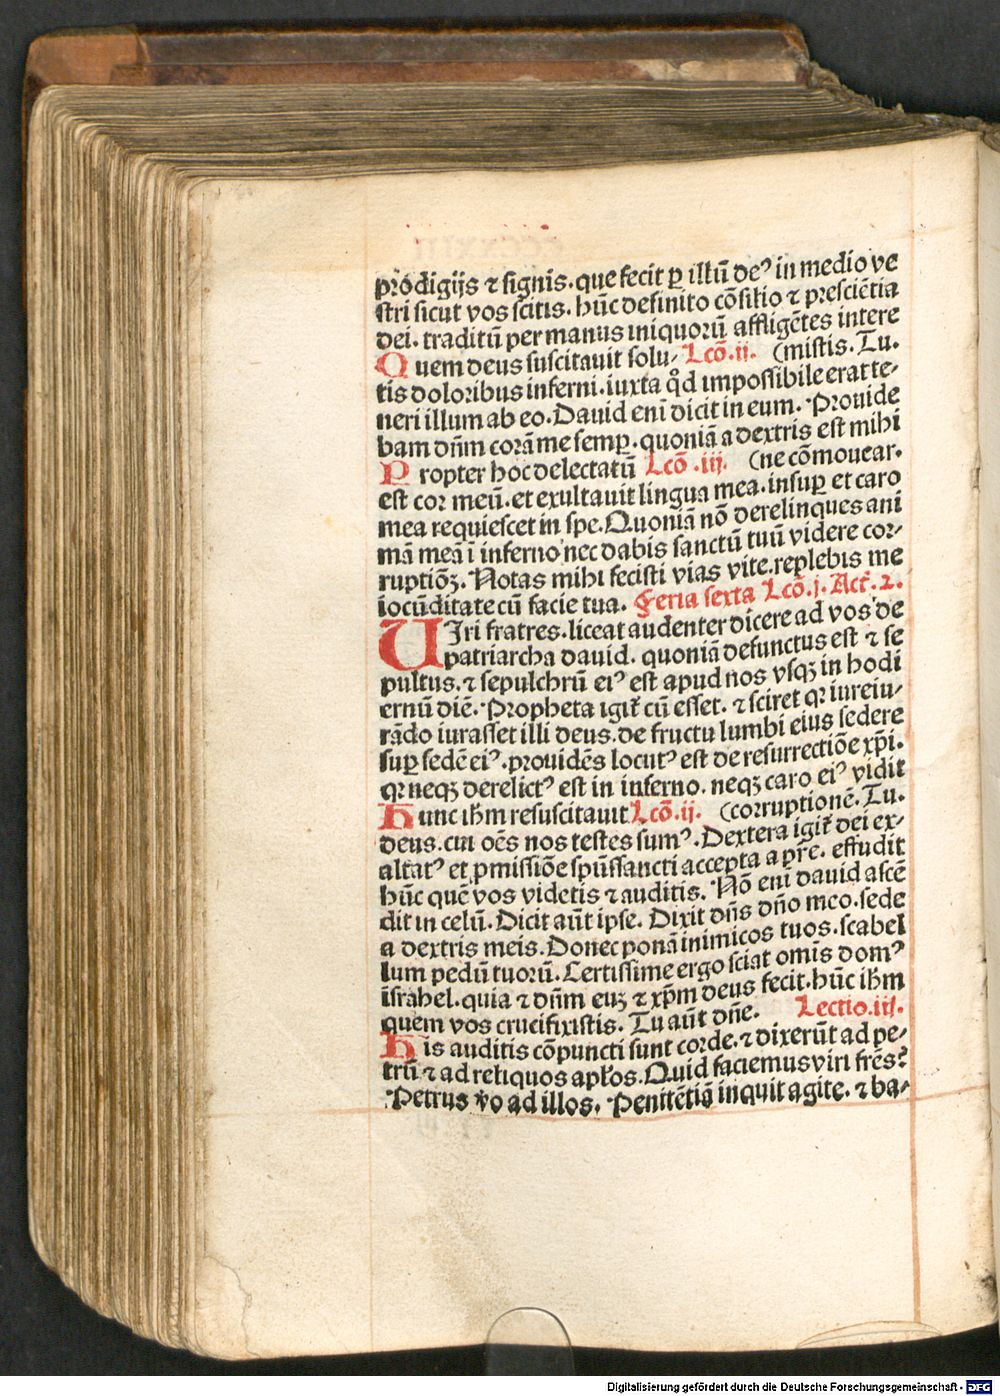 prodigijs ⁊ signis. que fecit ꝑ illū deꝰ in medio ve
stri sicut vos scitis. hūc definito cōsilio ⁊ presciētia
dei. traditū per manus iniquorū affligētes intere
Quem deus suscitauit solu- Lcō.ii. (mistis. Tu.
tis doloribus inferni. iuxta qd̄ impossibile erat te-
neri illum ab eo. Dauid enī dicit in eum. Prouide
bam dn̄m corā me semꝑ. quoniā a dextris est mihi
Propter hoc delectatū Lcō.iii. (ne cōmouear.
est cor meū. et exultauit lingua mea. insuꝑ et caro
mea requiescet in spe. Quoniā nō derelinques ani
mā meā ī inferno nec dabis sanctū tuū videre cor-
ruptiōꝫ. Notas mihi fecisti vias vite. replebis me
iocūditate cū facie tua. Feria sexta Lcō.j. Act̄. 2.
UIri fratres. liceat audenter dicere ad vos de
patriarcha dauid. quoniā defunctus est ⁊ se
pultus. ⁊ sepulchrū eiꝰ est apud nos vsqꝫ in hodi
ernū diē. Propheta igit̄ cū esset. ⁊ sciret qꝛ iureiu-
rādo iurasset illi deus. de fructu lumbi eius sedere
suꝑ sedē eiꝰ. prouidēs locutꝰ est de resurrectiōe xp̄i.
qꝛ neqꝫ derelictꝰ est in inferno. neqꝫ caro eiꝰ vidit
Hunc ihm̄ resuscitauit Lcō.ii. (corruptionē. Tu.
deus. cui oēs nos testes sumꝰ. Dextera igit̄ dei ex-
altatꝰ et ꝓmissiōe spūssancti accepta a pr̄e. effudit
hūc quē vos videtis ⁊ auditis. Nō enī dauid ascē
dit in celū. Dicit aūt ipse. Dixit dn̄s dn̄o meo. sede
a dextris meis. Donec ponā inimicos tuos. scabel
lum pedū tuorū. Certissime ergo sciat omīs domꝰ
israhel. quia ⁊ dn̄m euꝫ ⁊ xp̄m deus fecit. hūc ihm̄
quem vos crucifixistis. Tu aūt dn̄e. Lectio.iii.
His auditis cōpuncti sunt corde. ⁊ dixerūt ad pe-
trū ⁊ ad reliquos apl̄os. Quid faciemus viri fr̄es?
Petrus v̄o ad illos. Penitētiā inquit agite. ⁊ ba-
Digitalisierung gefördert durch die Deutsche Forschungsgemeinschaft - DFG